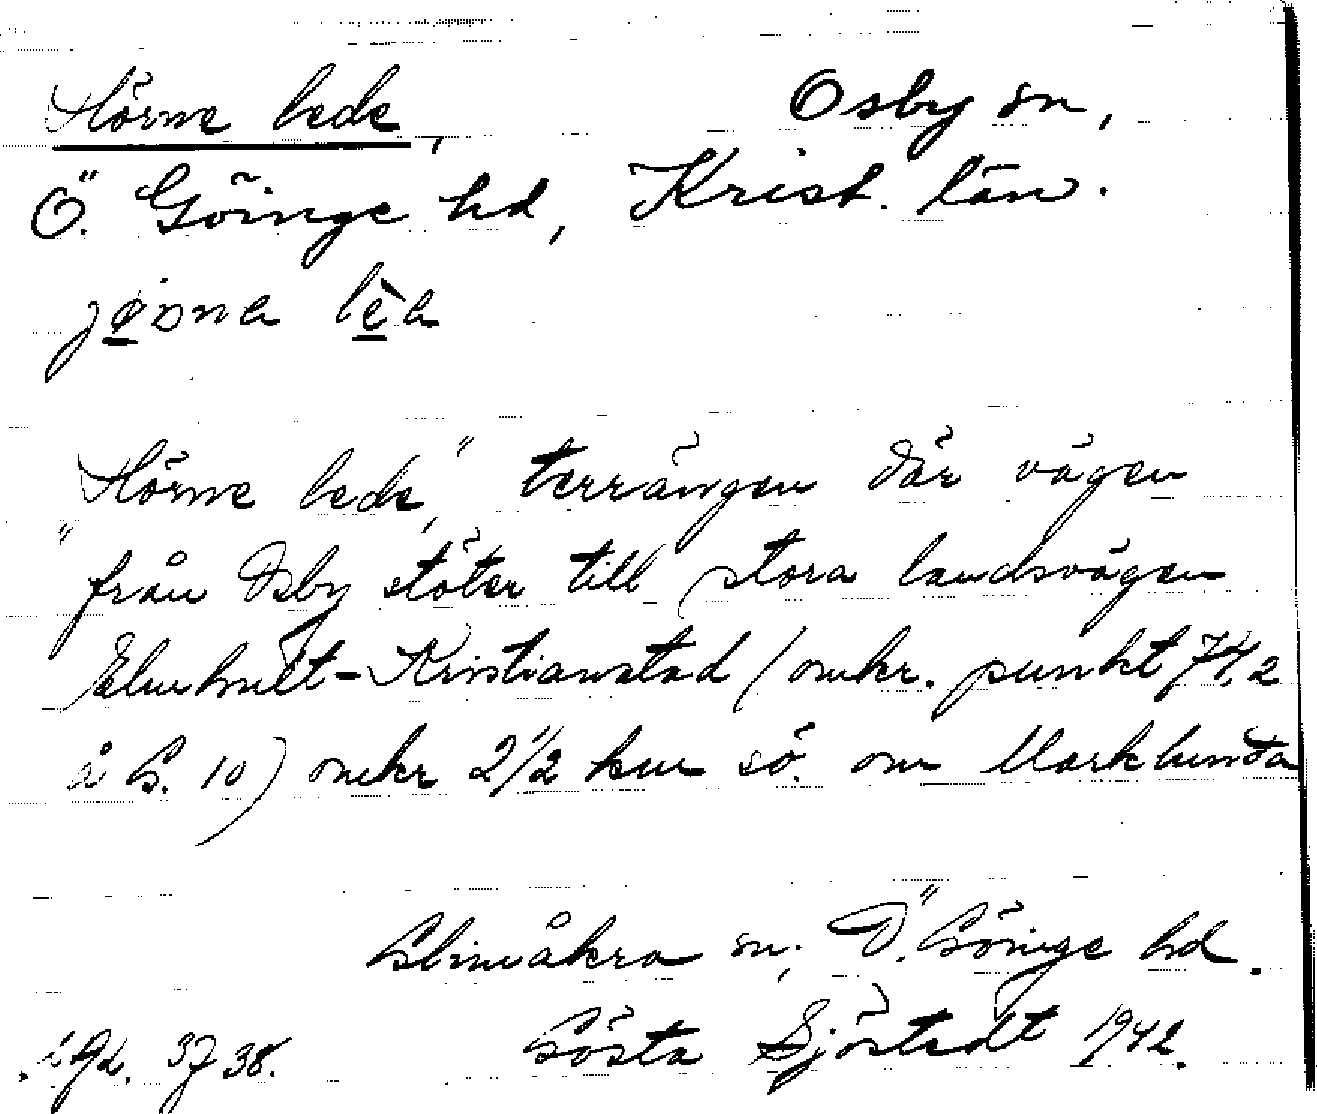 Hörne lede, Osby sn,
Ö. Göinge hd, Krist. län.
"Hörne lede", terrängen där vägen
från Osby stöter till stora landsvägen
Elmhult-Kristianstad (omkr. punkt 74,2
å G. 10) omkr 2 1/2 km sö. om Marklunda
Glimåkra sn, Ö. Göinge hd.
3738. Gösta Sjöstedt 1942.